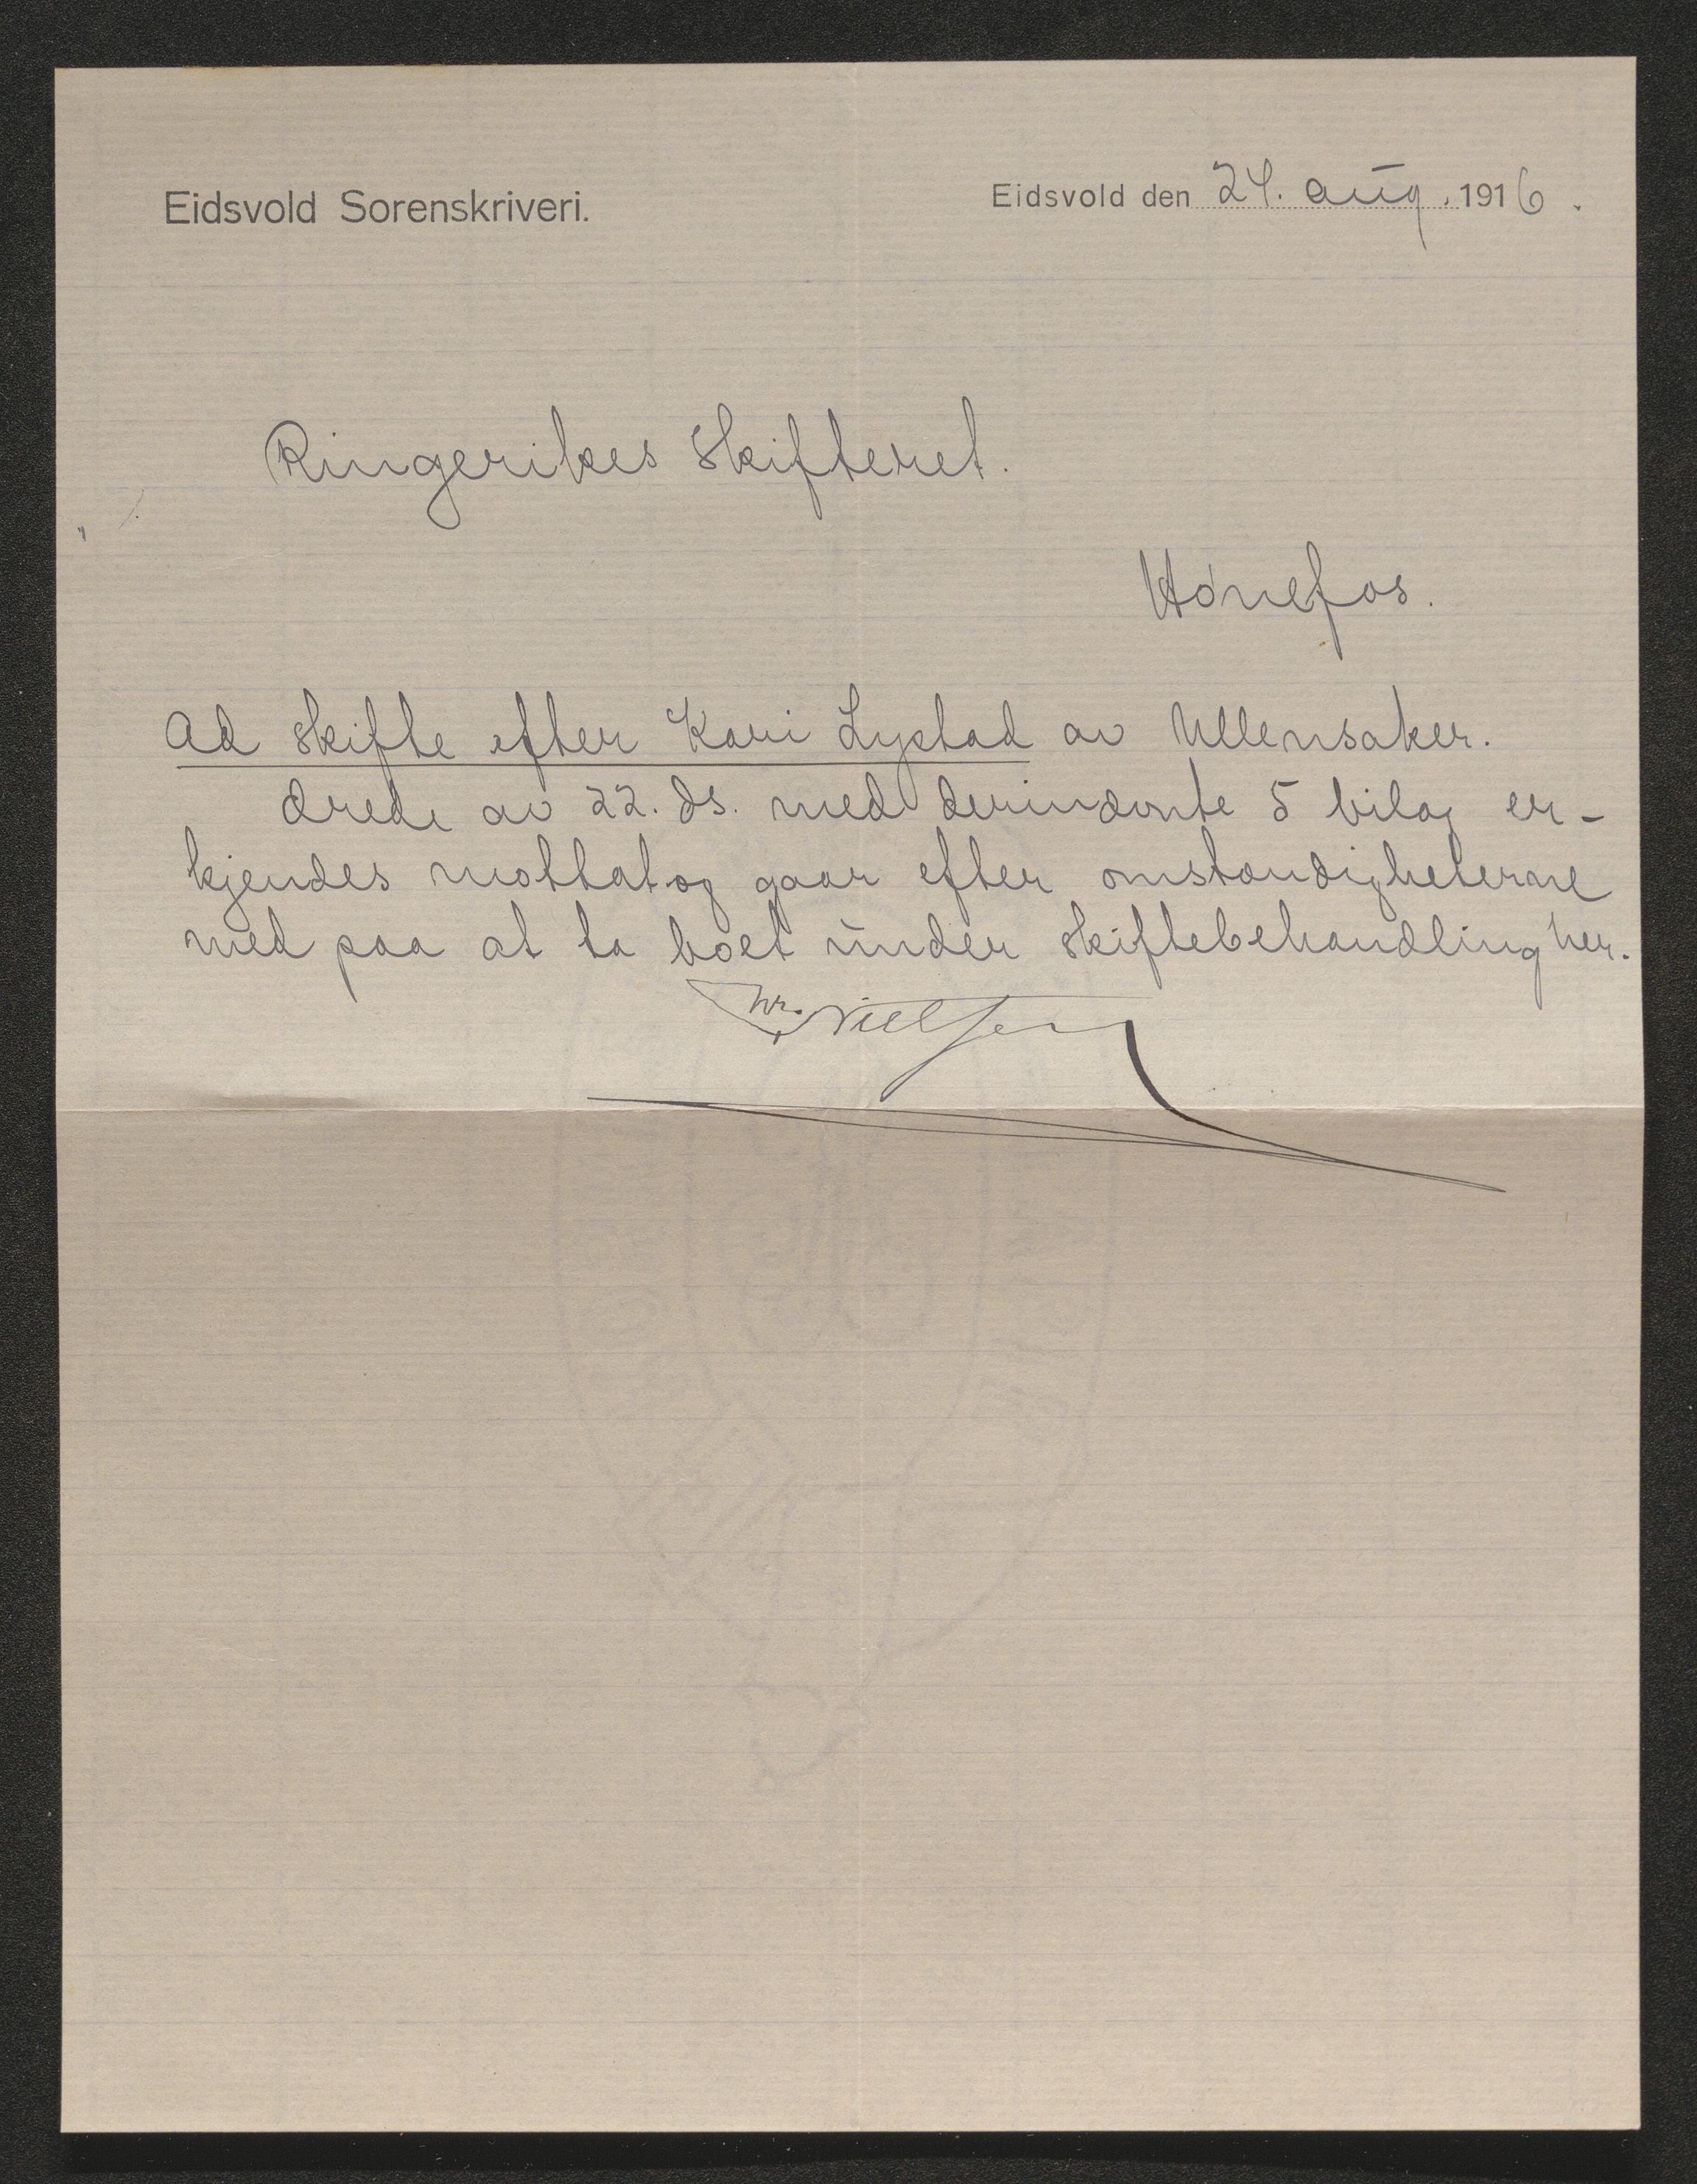 Eidsvold Sorenskriveri.
Eidsvold den 24. aug. 1916.
Ringerikes skifteret.
Hønefos.
Ad skifte efter Kari Lystad av Ullensaker.
Ærede av 22. ds. med derinævnte 5 bilag er-
kjendes mottat og gaar efter omstændigheterne
med paa at ta boet under skiftebehandling her.
Nielsen